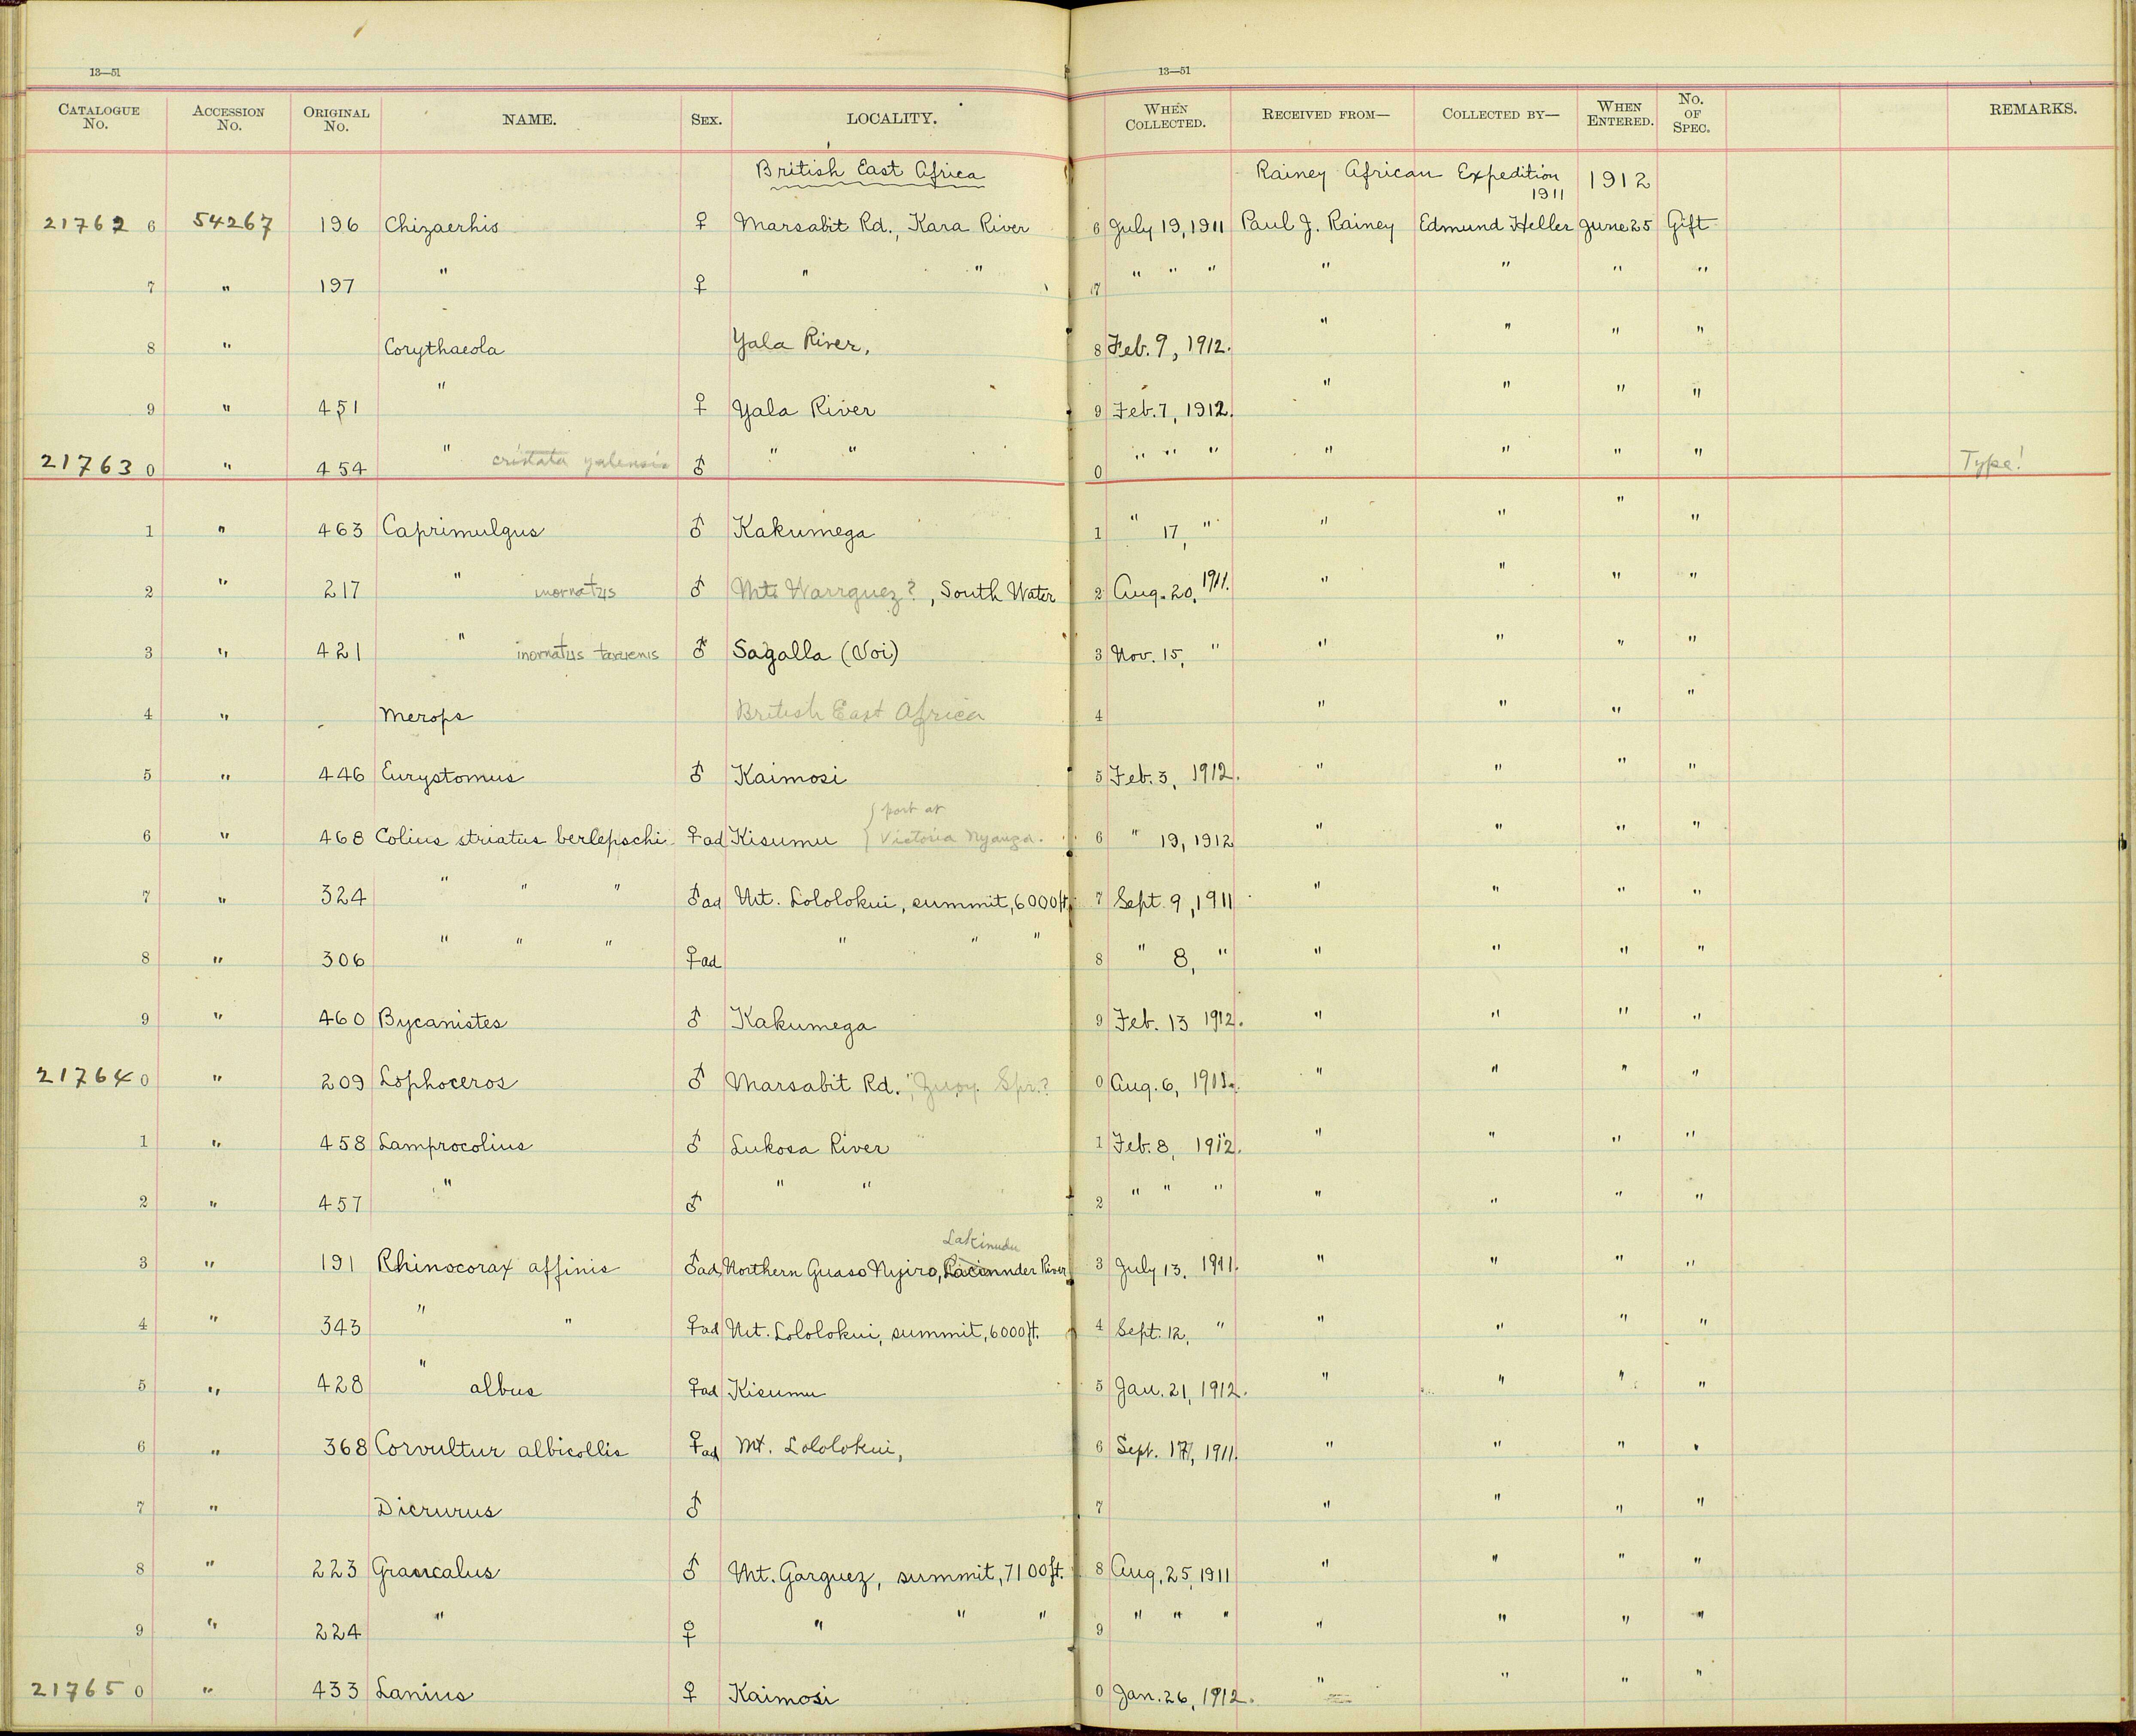 13—51 13—51
CATALOGUE No. ACCESSION No. ORIGINAL No. NAME. SEX. LOCALITY. WHEN COLLECTED. RECEIVED FROM— COLLECTED BY— WHEN ENTERED. No. OF SPEC. REMARKS.
British East Africa Rainey African Expedition 1911 1912
21762 6 54267 196 Chizaerhis ♀ Marsabit Rd., Kara River 6 July 19, 1911 Paul J. Rainey Edmund Heller June 25 Gift
7 " 197 " ♀ " " 7 " " " " " " "
8 " Corythaeola Yala River, 8 Feb. 9, 1912. " " " "
9 " 451 " ♀ Yala River 9 Feb. 7, 1912. " " " "
21763 0 " 454 " cristata yalensis ♂ " " 0 " " " " " " " Type!
1 " 463 Caprimulgus ♂ Kakumega 1 " 17, " " " " "
2 " 217 " inornatus ♂ Mt. Warrguez?, South Water 2 Aug. 20, 1911. " " " "
3 " 421 " inornatus ♂ Sagalla (Voi) 3 Nov. 15, " " " " "
4 " Merops British East Africa 4 " " " "
5 " 446 Eurystomus ♂ Kaimosi 5 Feb. 3, 1912. " " " "
6 " 468 Colius striatus berlepschi ♀ ad Kisumu { port at Victoria Nyanza. 6 " 19, 1912 " " " "
7 " 324 " " " ♂ ad Mt. Lololokui, summit, 6000 ft. 7 Sept. 9, 1911 " " " "
8 " 306 " " " ♀ ad " " " 8 " 8, " " " " "
9 " 460 Bycanistes ♂ Kakumega 9 Feb. 13 1912. " " " "
21764 0 " 209 Lophoceros ♂ Marsabit Rd., Spr.? 0 Aug. 6, 1911. " " " "
1 " 458 Lamprocolius ♂ Lukosa River 1 Feb. 8, 1912. " " " "
2 " 457 " ♂ " " 2 " " " " " " "
Lakinudu
3 " 191 Rhinocorax affinis ♂ ad Northern Guaso Nyiro, River 3 July 13, 1911. " " " "
4 " 343 " " ♀ ad Mt. Lololokui, summit, 6000 ft. 4 Sept. 12, " " " " "
5 " 428 " albus ♀ ad Kisumu 5 Jan. 21, 1912. " " " "
6 " 368 Corvultur albicollis ♀ ad Mt. Lololokui, 6 Sept. 17, 1911. " " " "
7 " Dicrurus ♂ 7 " " " "
8 " 223 Graucalus ♂ Mt. Garguez, summit, 7100 ft. 8 Aug. 25, 1911 " " " "
9 " 224 " ♀ " " " 9 " " " " " " "
21765 0 " 433 Lanius ♀ Kaimosi 0 Jan. 26, 1912. " " " "